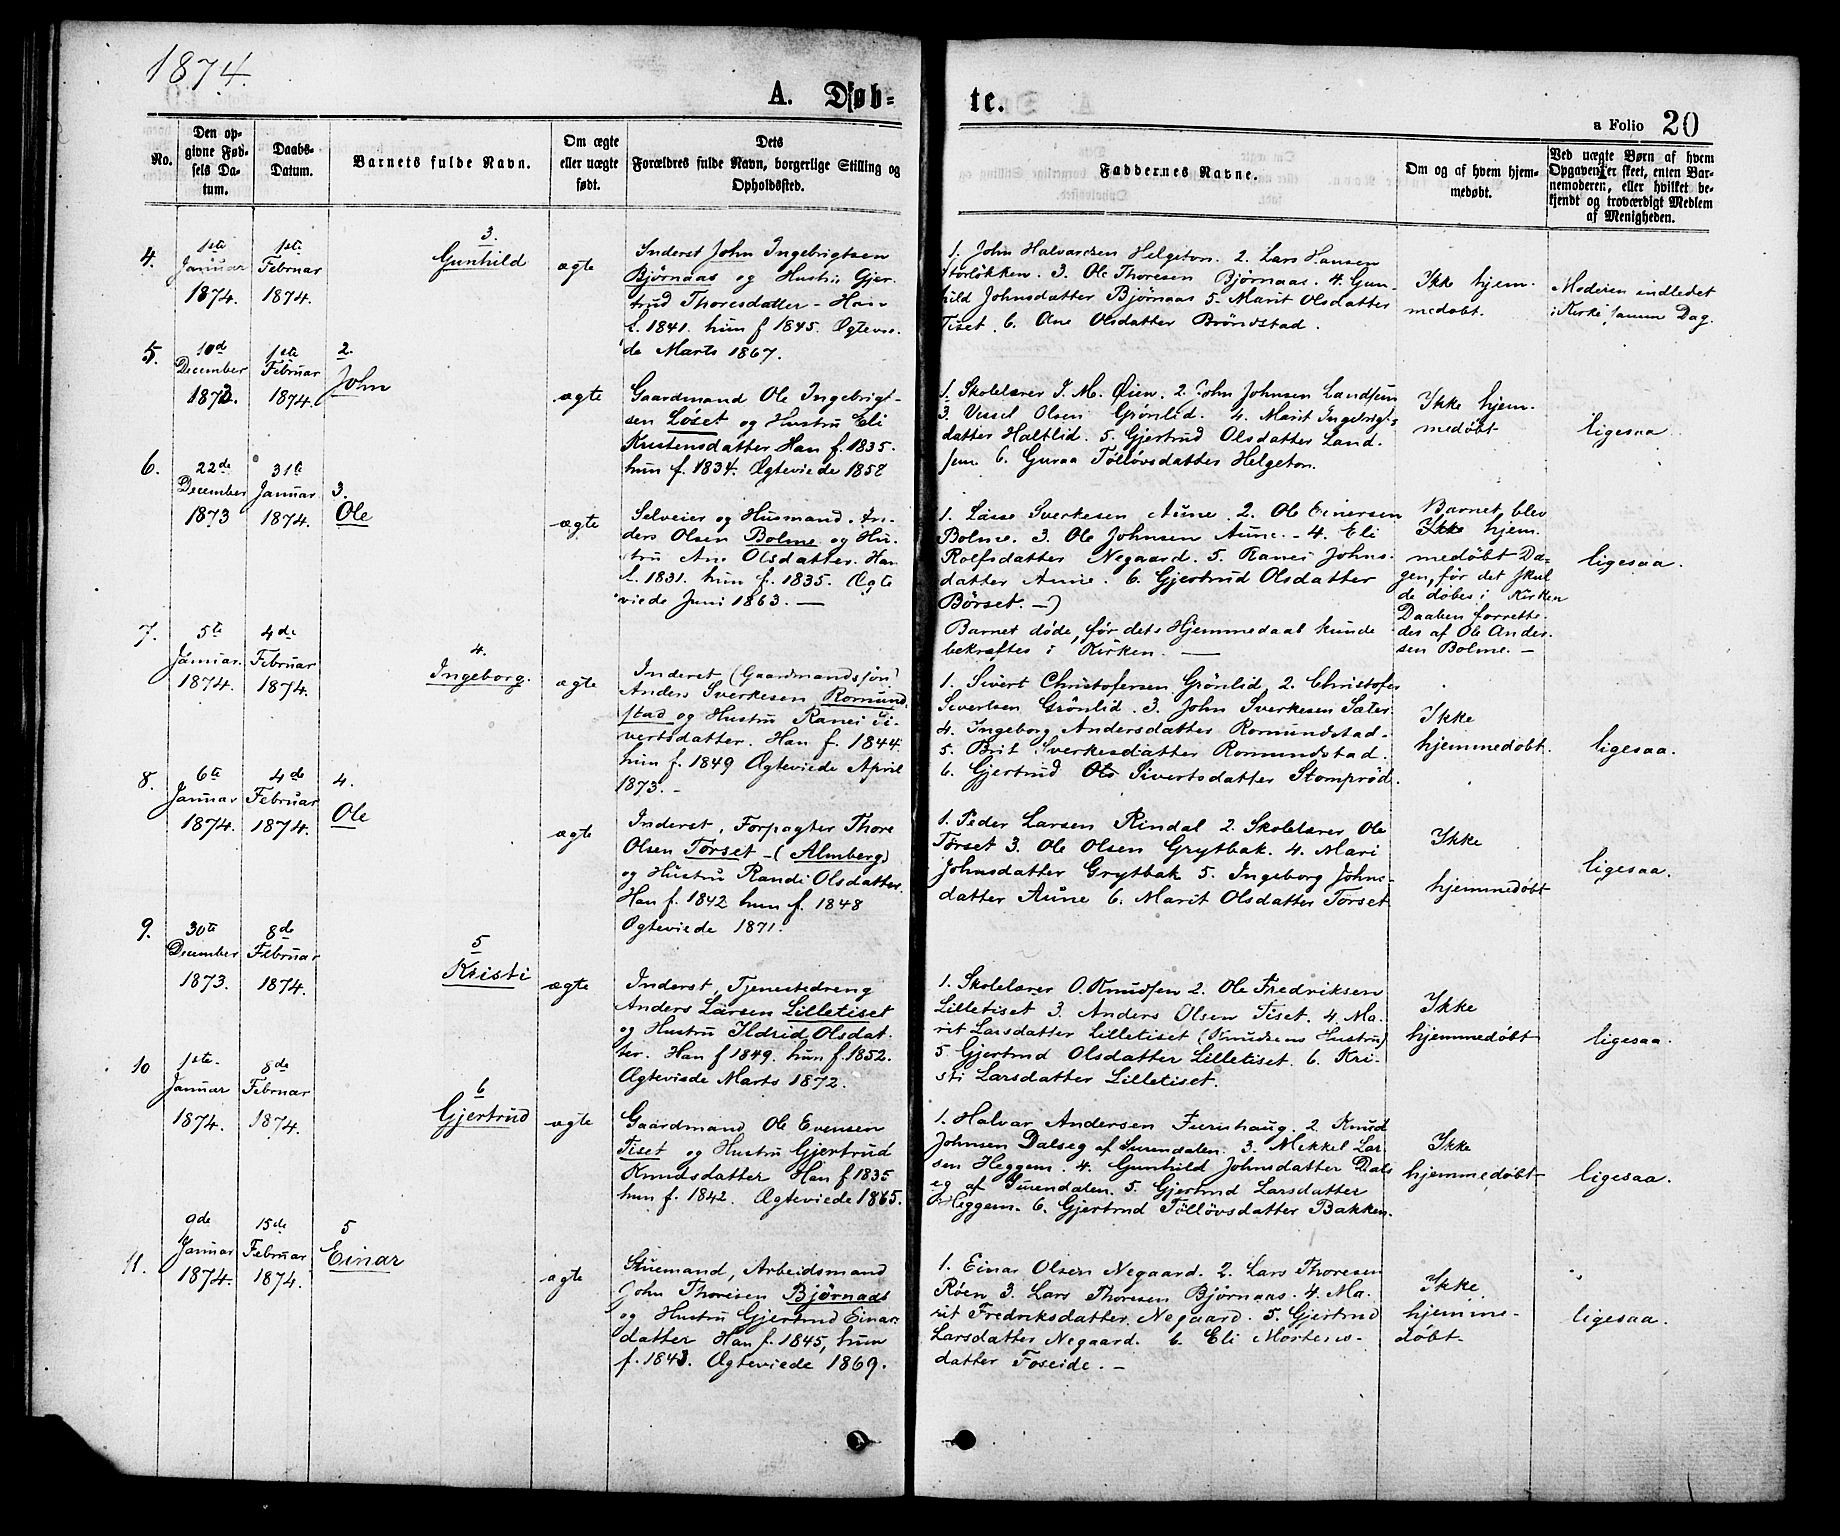 1874.
A. Døb=
te.
a Folio 20
No.
Den op-
givne Fød-
sels Da-
tum.
Daabs-
Datum.
Barnets fulde Navn.
Om ægte
eller uægte
født.
Dets
Forældres fulde Navn, borgerlige Stilling og
Opholdssted.
Faddernes Navne.
Om og af hvem hjem-
medøbt.
Ved uægte Børn af hvem
Opgaven er skeet, enten Bar-
nemoderen, eller hvilket be-
kjendt og troværdigt Medlem
af Menigheden.
4.
1ste
Januar
1874.
1ste
Februar
1874.
3.
Gunhild
ægte
Inderst John Ingebrigtsen
Bjørnaas og Hustru Gjer-
trud Thoresdatter - Han
f. 1841. hun f 1845. Ægtevie-
de Marts 1867.
1. John Halvardsen Helgeton. 2. Lars Hansen
Storløkken. 3. Ole Thoresen Bjørnaas. 4. Gun-
hild Johnsdatter Bjørnaas 5. Marit Olsdatter
Tiset. 6. Ane Olsdatter Brøndstad.
Ikke hjem-
medøbt.
Moderen indledet
i Kirke samme Dag.
5.
10de
December
1873.
1ste
Februar
1874.
2.
John
ægte
Gaardmand Ole Ingebrigt-
sen Løset og Hustru Eli
Kristensdatter Han f. 1835.
hun f. 1834. Ægteviede 1858
1. Skolelærer J. M. Øien. 2. John Johnsen Landsem
3. Vessel Olsen Grønlid. 4. Marit Ingebrigts-
datter Haltlid. 5. Gjertrud Olsdatter Land-
sem 6. Guraa Tølløvsdatter Helgeton.
Ikke hjem-
medøbt
ligesaa.
6.
22de
December
1873
31te
Januar
1874.
3.
Ole
ægte
Selveier og Husmand. An-
ders Olsen Bolme og Hu-
stru Ane Olsdatter. Han
f. 1831. hun f. 1835. Ægte
viede Juni 1863. —
1. Lasse Sverkesen Aune. 2. Ole Einersen
Bolme. 3. Ole Johnsen Aune. - 4. Eli
Rolfsdatter Negaard. 5. Ranei Johns-
datter Aune. 6. Gjertrud Olsdatter
Børset. —)
Barnet døde, før dets Hjemmedaab kunde
bekræftes i Kirken. —
Barnet blev
Ikke hjem-
medøbt Da-
gen, før det skul
de døbes i Kirken
Daaben forrette-
des af Ole Ander-
sen Bolme. -
ligesaa.
7.
5te
Januar.
1874.
4de
Februar
1874.
4.
Ingeborg.
ægte
Inderst (Gaardmandssøn)
Anders Sverkesen Romund-
stad og Hustru Ranei Si-
vertsdatter. Han f. 1844.
hun f. 1849 Ægteviede April
1873. -
1. Sivert Christofersen Grønlid. 2. Christofer
Sivertsen Grønlid. 3. John Sverkesen Sæter.
4. Ingeborg Andersdatter Romundstad.
5. Brit Sverkesdatter Romundstad.
6. Gjertrud Ols Sivertsdatter Stomprød.
Ikke
hjemmedøbt.
ligesaa.
8.
6te
Januar
1874.
4de
Februar
1874.
4.
Ole
ægte
Inderst, Forpagter Thore
Olsen Torset - (Almberg)
og Hustru Randi Olsdatter.
Han f. 1842 hun f. 1848
Ægteviede 1871.
1. Peder Larsen Rindal 2. Skolelærer Ole
Torset 3. Ole Olsen Grytbak. 4. Mari
Johnsdatter Grytbak 5. Ingeborg Johns-
datter Aune 6. Marit Olsdatter Torset
Ikke
hjemmedøbt
ligesaa.
9.
30te
December
1873.
8de
Februar
1874.
5
Kristi
ægte
Inderst, Tjenestedreng
Anders Larsen Lilletiset
og Hustru Ildrid Olsdat-
ter. Han f 1849. hun f. 1852.
Ægteviede Marts 1872.
1. Skolelærer O. Knudsen 2. Ole Fredriksen
Lilletiset 3. Anders Olsen Tiset. 4. Ma-
rit Larsdatter Lilletiset (Knudsens Hustru)
5. Gjertrud Olsdatter Lilletiset. 6. Kri-
sti Larsdatter Lilletiset.
Ikke
hjemmedøbt
ligesaa.
10
1ste
Januar
1874.
8de
Februar
1874.
6
Gjertrud
ægte
Gaardmand Ole Evensen
Tiset og Hustru Gjertrud
Knudsdatter Han f 1835
hun f. 1842. Ægteviede 1865.
1. Halvar Andersen Furuhaug. 2. Knud
Johnsen Dalseg af Surendalen. 3. Mikkel Lar-
sen Heggem. 4. Gunhild Johnsdatter Dals-
eg af Surendalen. 5. Gjertrud Larsdatter
Heggem. 6. Gjertrud Tølløvsdatter Bakken.
Ikke
hjemmedøbt
ligesaa.
11.
9de
Januar
1874.
15de
Februar
1874.
5
Einar
ægte
Stuemand, Arbeidsmand
John Thoresen Bjørnaas
og Hustru Gjertrud Einar-
datter Han f. 1845, hun
f. 1843. Ægteviede 1869.
1. Einar Olsen Negaard. 2. Lars Thoresen
Røen 3. Lars Thoresen Bjørnaas. 4. Ma-
rit Fredriksdatter Negaard. 5. Gjertrud
Larsdatter Negaard. 6. Eli Mortens-
datter Foseide. -
Ikke
hjemme-
døbt
ligesaa.